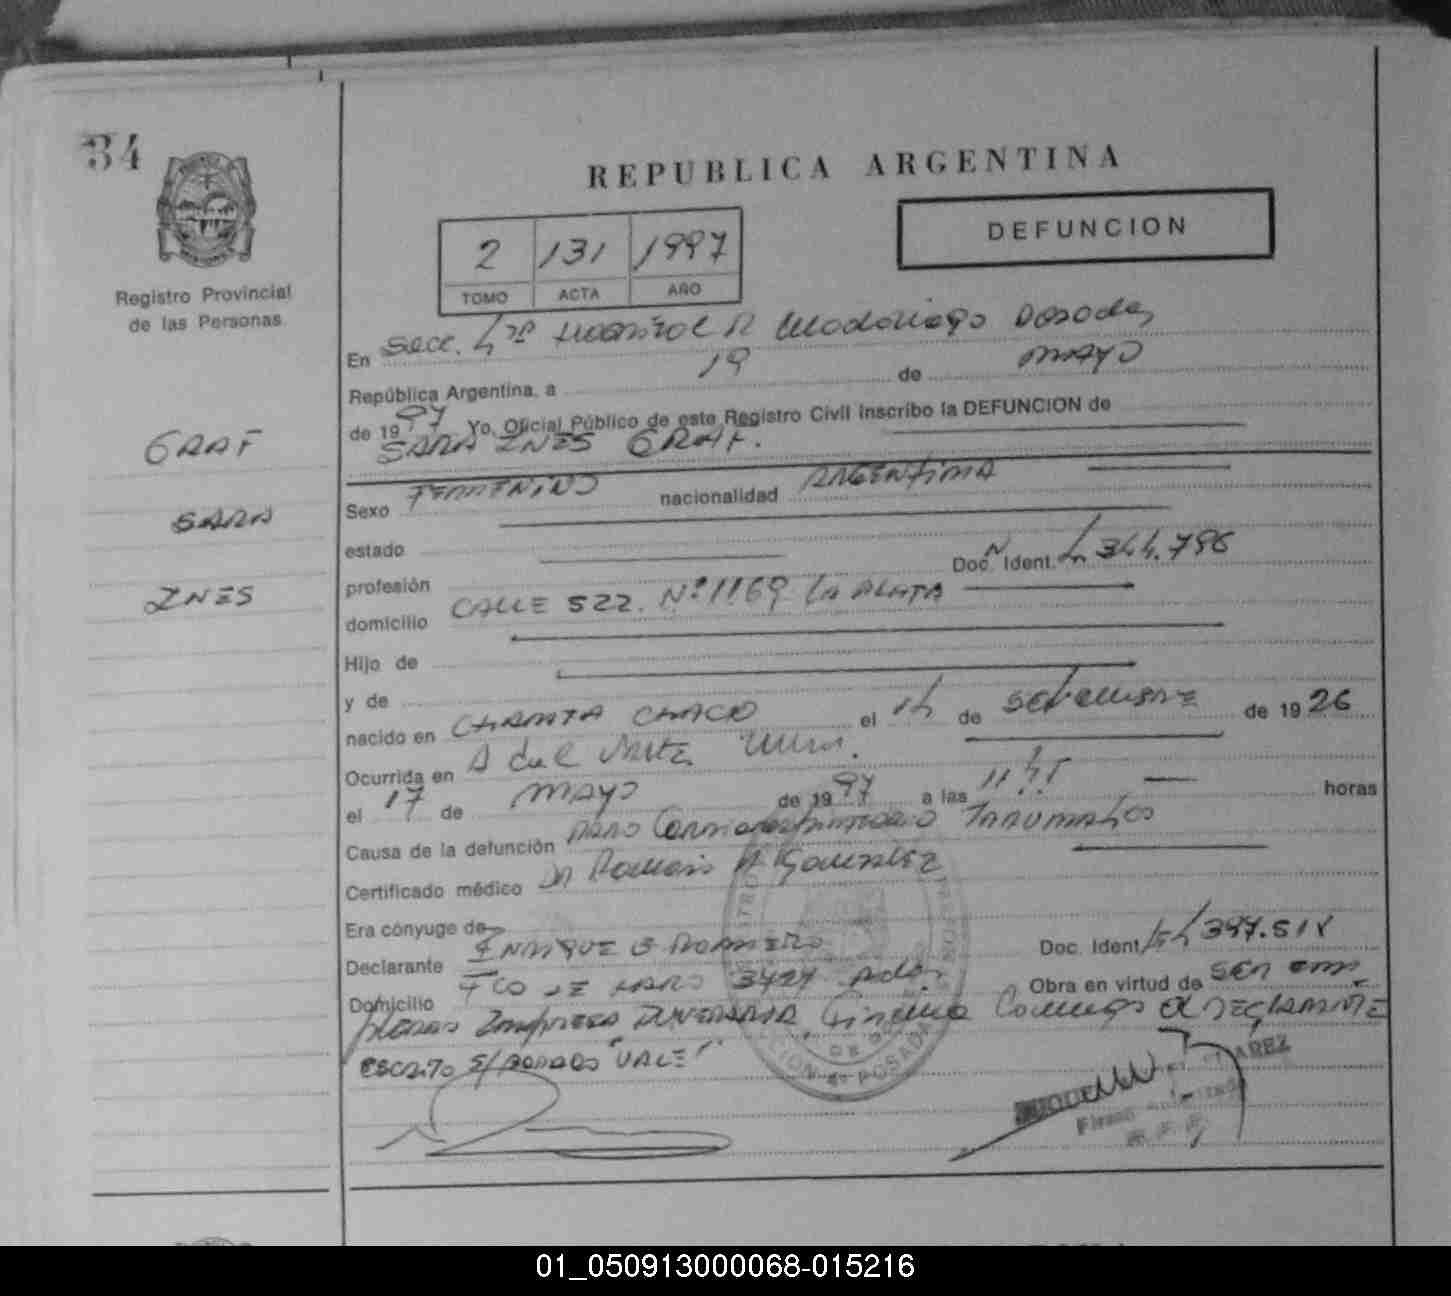 34
REPUBLICA ARGENTINA
DEFUNCION
2 131 1997
TOMO ACTA AÑO
Registro Provincial
de las Personas
En Secc. 4ta Posadas
República Argentina, a 19 de MAYO
de 1997 Yo, Oficial Público de este Registro Civil inscribo la DEFUNCION de
SARA INES GRAF.
GRAF
SARA
INES
Sexo FEMENINO nacionalidad ARGENTINA
estado
profesión Doc. Ident. 4.344.796
domicilio CALLE 522. Nº 1169 LA PLATA
Hijo de
y de
nacido en CHARATA CHACO el 14 de SETIEMBRE de 1926
Ocurrida en
el 17 de MAYO de 1997 a las 11 horas
Causa de la defunción PARO CARDIORESPIRATORIO
Certificado médico Dr González
Era cónyuge de
Declarante ENRIQUE G Doc. Ident.
Domicilio FCO DE HARO 3427 Pdas. Obra en virtud de SER
EMPRESA FUNERARIA Firma Conmigo el DECLARANTE
ESCRITO S/ "VALE"
01_050913000068-015216